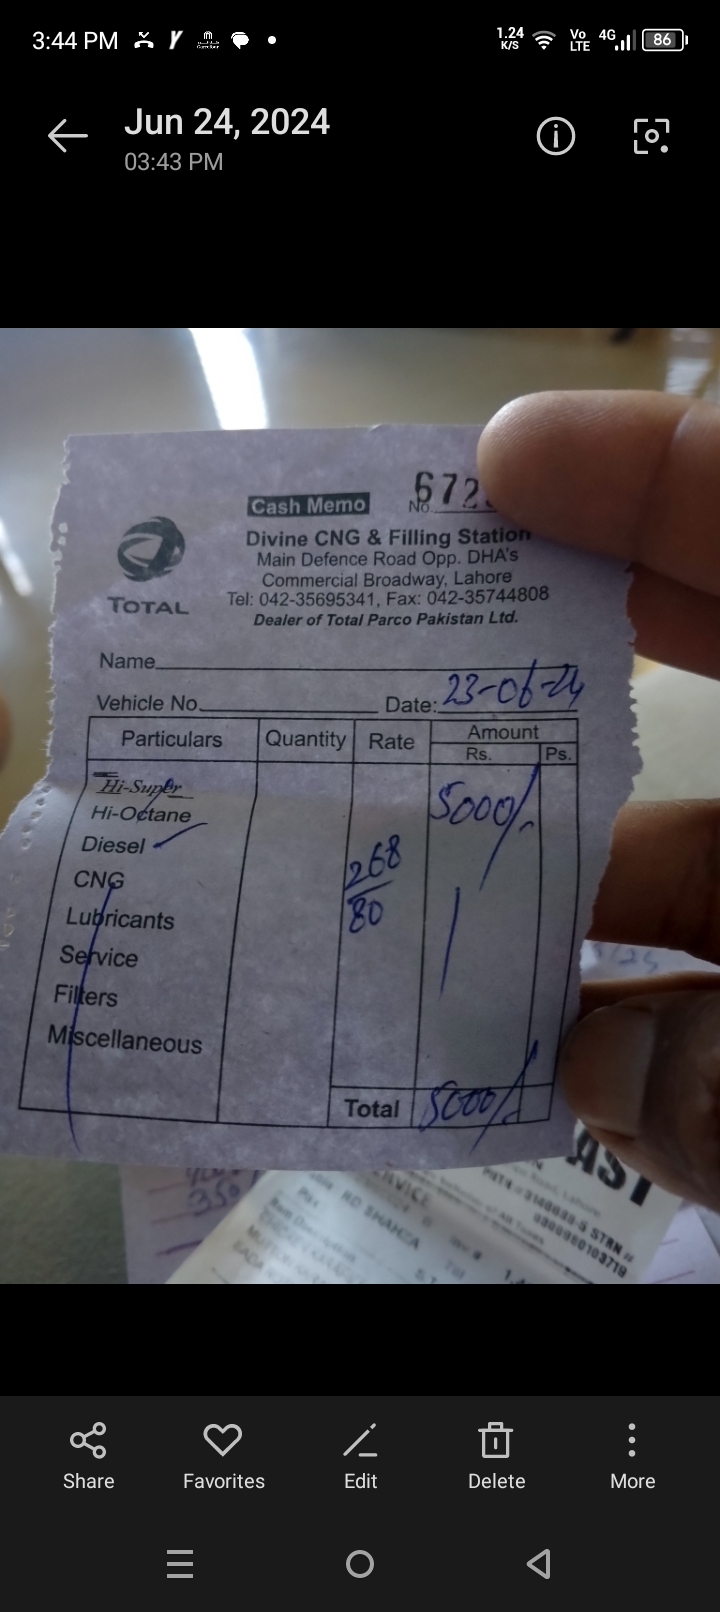 3:44 PM
1.24 K/S
Vo LTE
4G
86
Jun 24, 2024
03:43 PM
Cash Memo
No. 672
TOTAL
Divine CNG & Filling Station
Main Defence Road Opp. DHA's
Commercial Broadway, Lahore
Tel: 042-35695341, Fax: 042-35744808
Dealer of Total Parco Pakistan Ltd.
Name
Vehicle No. Date: 23-06-24
Particulars Quantity Rate Amount
Rs. Ps.
Hi-Super 5000/-
Hi-Octane
Diesel
CNG 268
80
Lubricants
Service
Filters
Miscellaneous
Total 5000/-
350
AST
RVICE
RD SHAHZA
STRN #
Share Favorites Edit Delete More